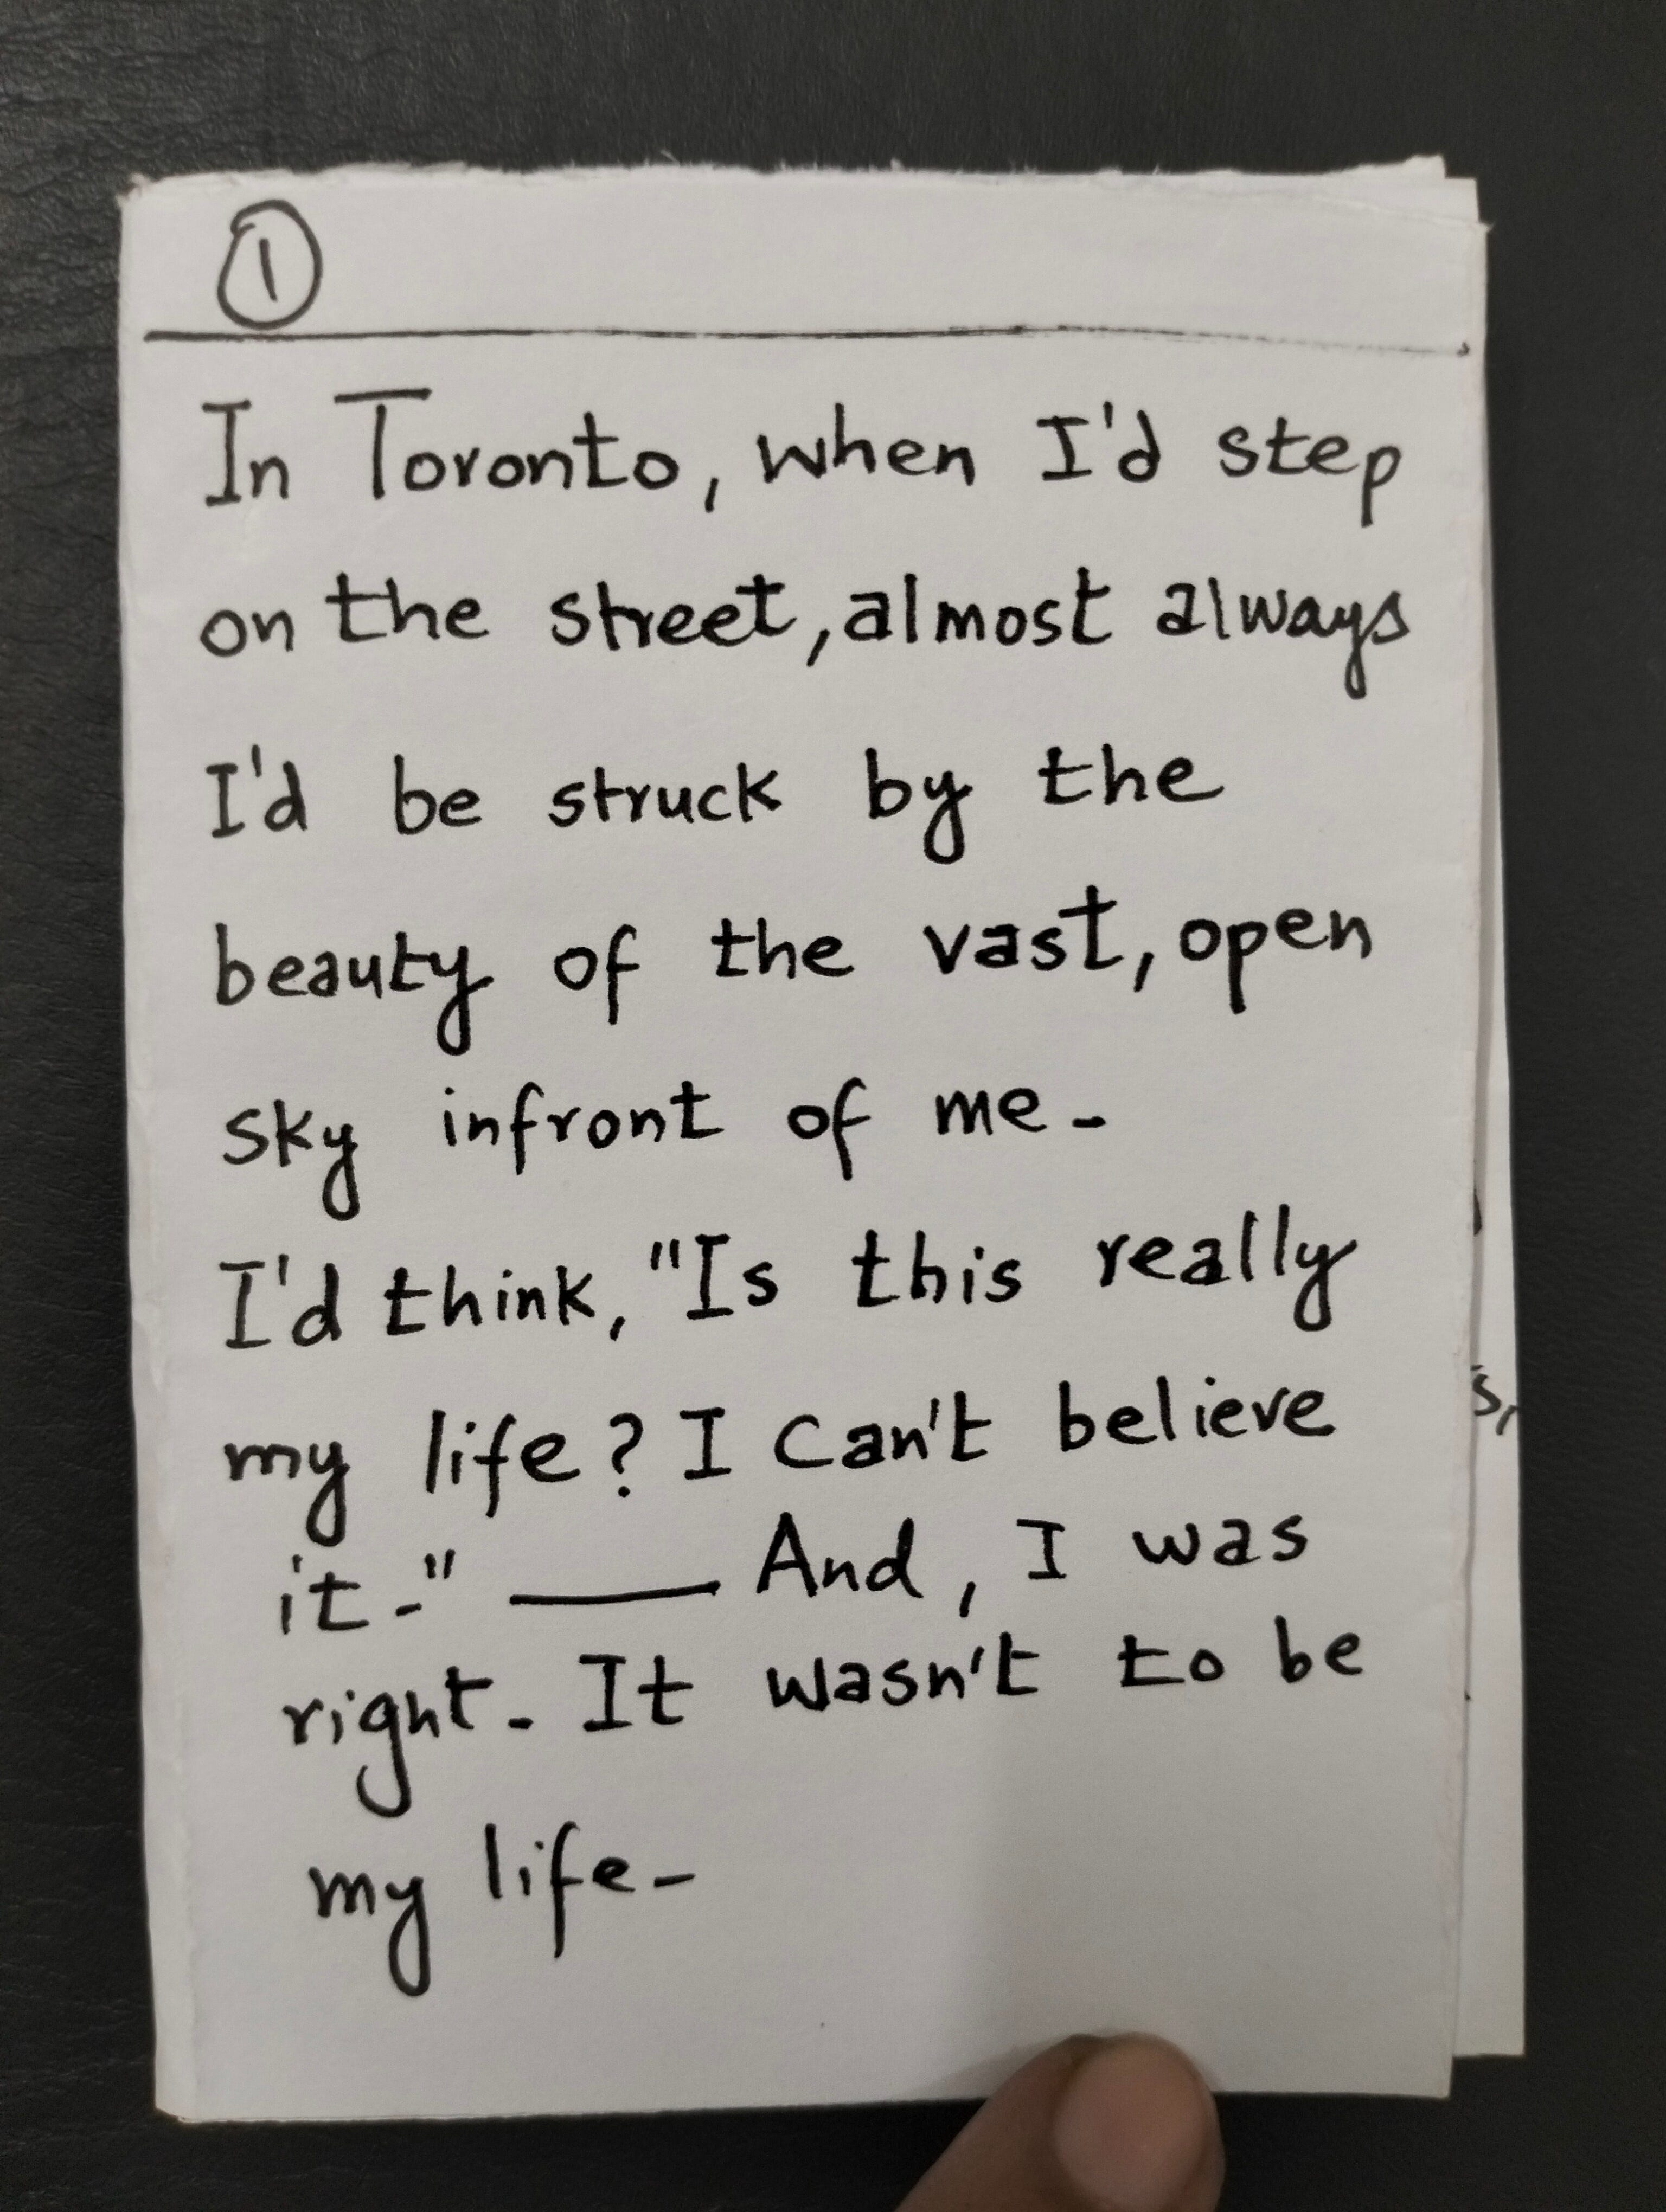 1
In Toronto, when I'd step
on the street, almost always
I'd be struck by the
beauty of the vast, open
sky infront of me-
I'd think, "Is this really
my life? I can't believe
it-" — And, I was
right- It wasn't to be
my life-
s,